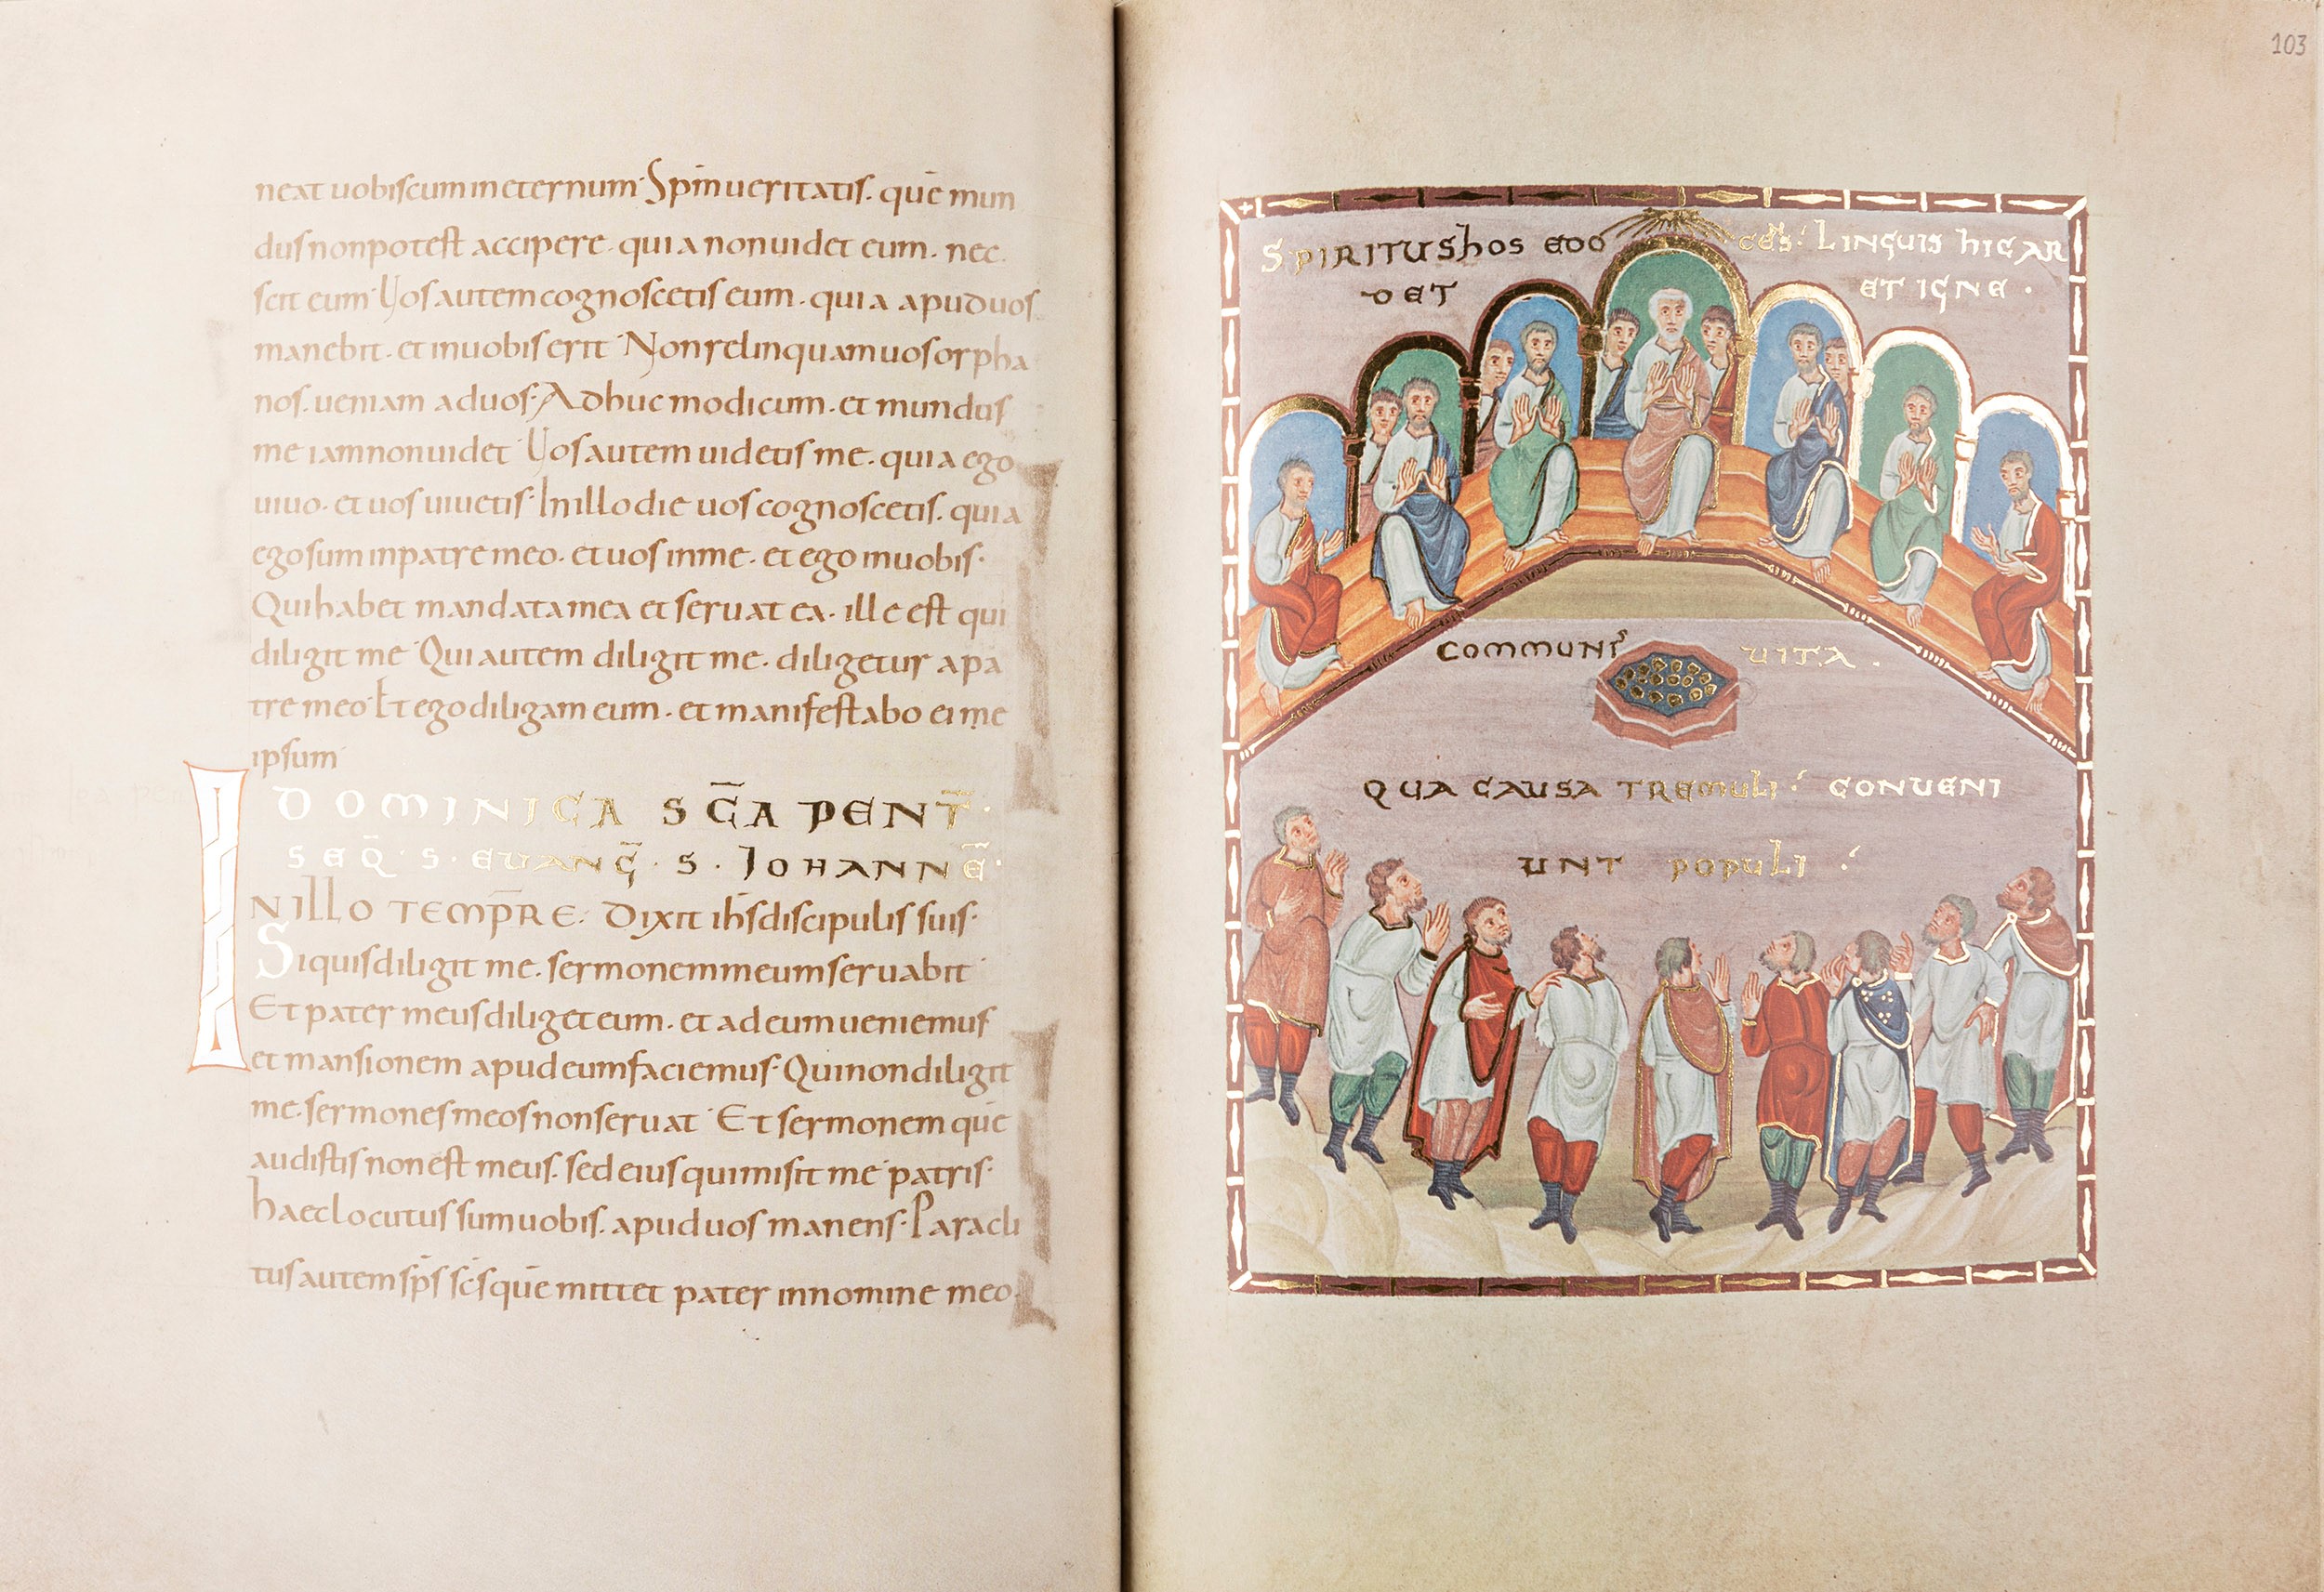 neat uobiscum in eternum· Spm ueritatis. quē mun
dus non potest accipere. quia non uidet eum. nec
scit eum· Uos autem cognoscetis eum. quia apud uos
manebit. et in uobis erit· Non relinquam uos orpha
nos. ueniam ad uos· Adhuc modicum. et mundus
me iam non uidet· Uos autem uidetis me. quia ego
uiuo. et uos uiuetis· In illo die uos cognoscetis. quia
ego sum in patre meo. et uos in me. et ego in uobis·
Qui habet mandata mea et seruat ea. ille est qui
diligit me· Qui autem diligit me. diligetur a pa
tre meo· Et ego diligam eum. et manifestabo ei me
ipsum·
DOMINICA SC̄A PENT̄·
SEQ̄· S· EUANḠ· S· IOHANNĒ·
IN ILLO TEMP̄RE· Dixit ihs discipulis suis·
Si quis diligit me. sermonem meum seruabit·
Et pater meus diliget eum. et ad eum ueniemus
et mansionem apud eum faciemus· Qui non diligit
me. sermones meos non seruat· Et sermonem quē
audistis non est meus. sed eius qui misit me patris·
haec locutus sum uobis. apud uos manens· Paracli
tus autem sp̄s sc̄s quē mittet pater in nomine meo.
103
SPIRITUS hOS EDO CĒS· LINGUIS hIC AR
DET ET IGNE·
COMMUNIS UITA·
QUA CAUSA TREMULI· CONUENI
UNT POPULI·